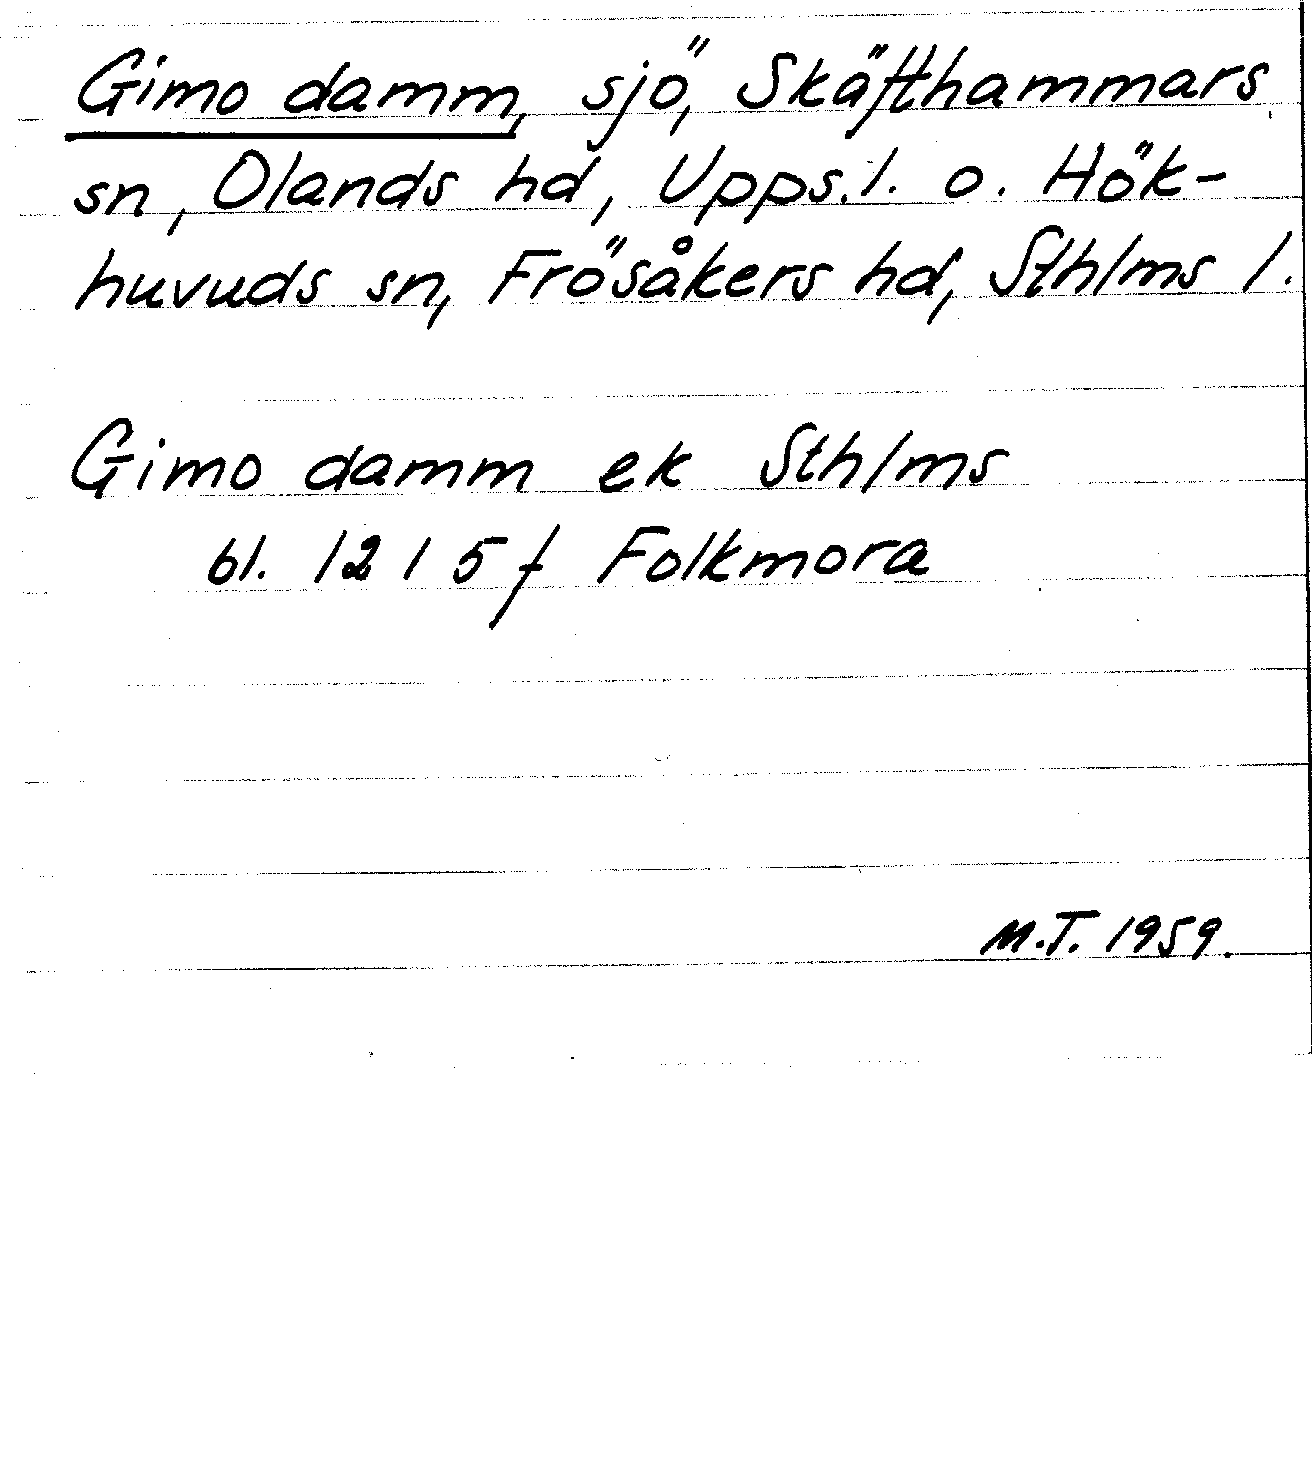 Gimo damm, sjö, Skäfthammars
sn, Olands hd, Upps. l. o. Hök-
huvuds sn, Frösåkers hd, Sthlms l.
Gimo damm ek Sthlms
bl. 12 1 5 f Folkmora
M.T. 1959.